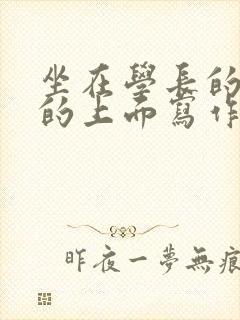 坐在學長的
的上面寫作
昨夜一夢無痕